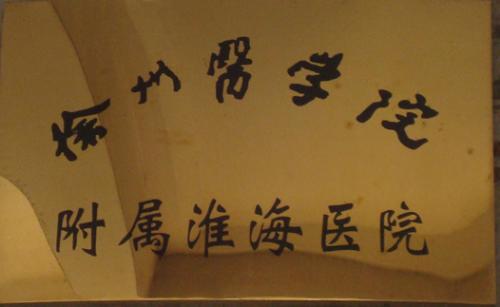 徐州醫学院
附属淮海医院